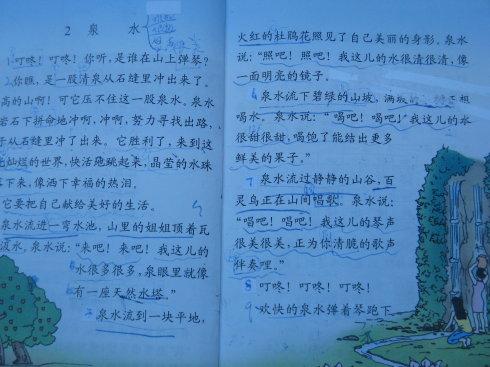 2 泉水
叮咚！叮咚！你听，是谁在山上弹琴？
你瞧，是一股清泉从石缝里冲出来了。
高的山啊！可它压不住这一股泉水。泉水
岩石下拼命地冲啊，冲啊，努力寻找出路，
于从石缝里冲了出来。它胜利了，来到这
灿烂的世界，快活地跳起来，晶莹的水珠
下来，像洒下幸福的热泪。
它要把自己献给美好的生活。
泉水流进一弯水池，山里的姐姐顶着瓦
汲水。泉水说：“来吧！来吧！我这儿的
水很多很多，泉眼里就像
有一座天然水塔。”
泉水流到一块平地，
火红的杜鹃花照见了自己美丽的身影。泉水
说：“照吧！照吧！我这儿的水很清很清，像
一面明亮的镜子。
泉水流下碧绿的山坡，满
喝水。泉水说：“喝吧！喝吧！我这儿的水
很甜很甜，喝饱了能结出更多
鲜美的果子。”
泉水流过静静的山谷，百
灵鸟正在山间唱歌。泉水说：
“唱吧！唱吧！我这儿的琴声
很美很美，正为你清脆的歌声
伴奏哩。”
叮咚！叮咚！叮咚！
欢快的泉水弹着琴跑下